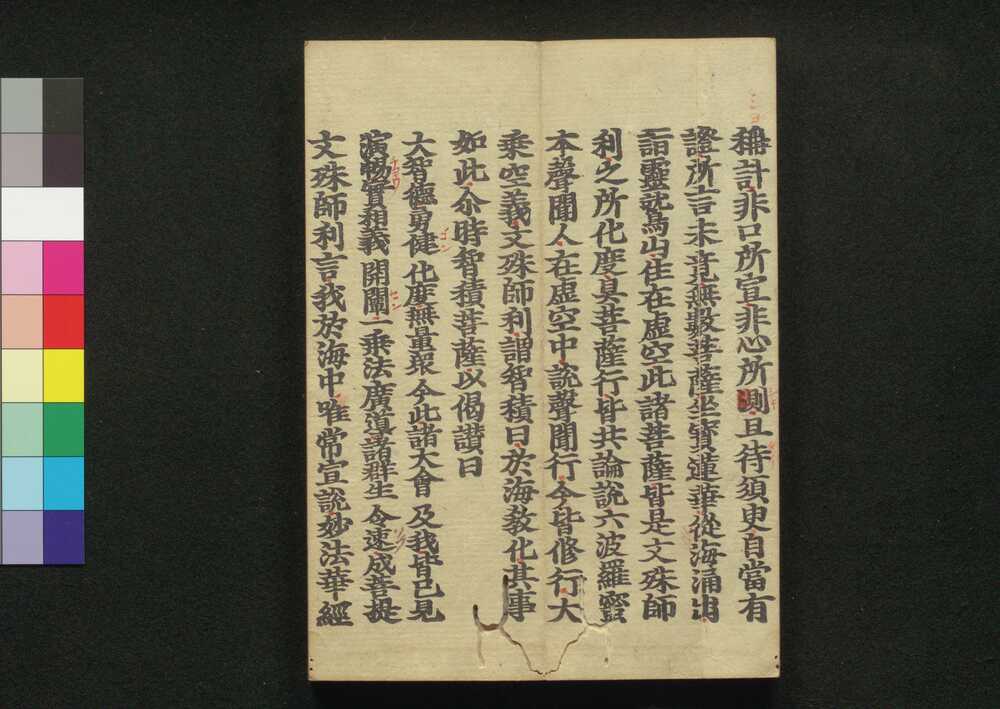 稱計非口所宣非心所測且待須臾自當有
證所言未竟無數菩薩坐寶蓮華從海涌出
詣靈鷲山住在虛空此諸菩薩皆是文殊師
利之所化度具菩薩行皆共論說六波羅蜜
本聲聞人在虛空中說聲聞行今皆修行大
乘空義文殊師利謂智積曰於海教化其事
如此尒時智積菩薩以偈讚曰
大智德勇健 化度無量眾 今此諸大會 及我皆已見
演暢實相義 開闡一乘法 廣導諸群生 令速成菩提
文殊師利言我於海中唯常宣說妙法華經